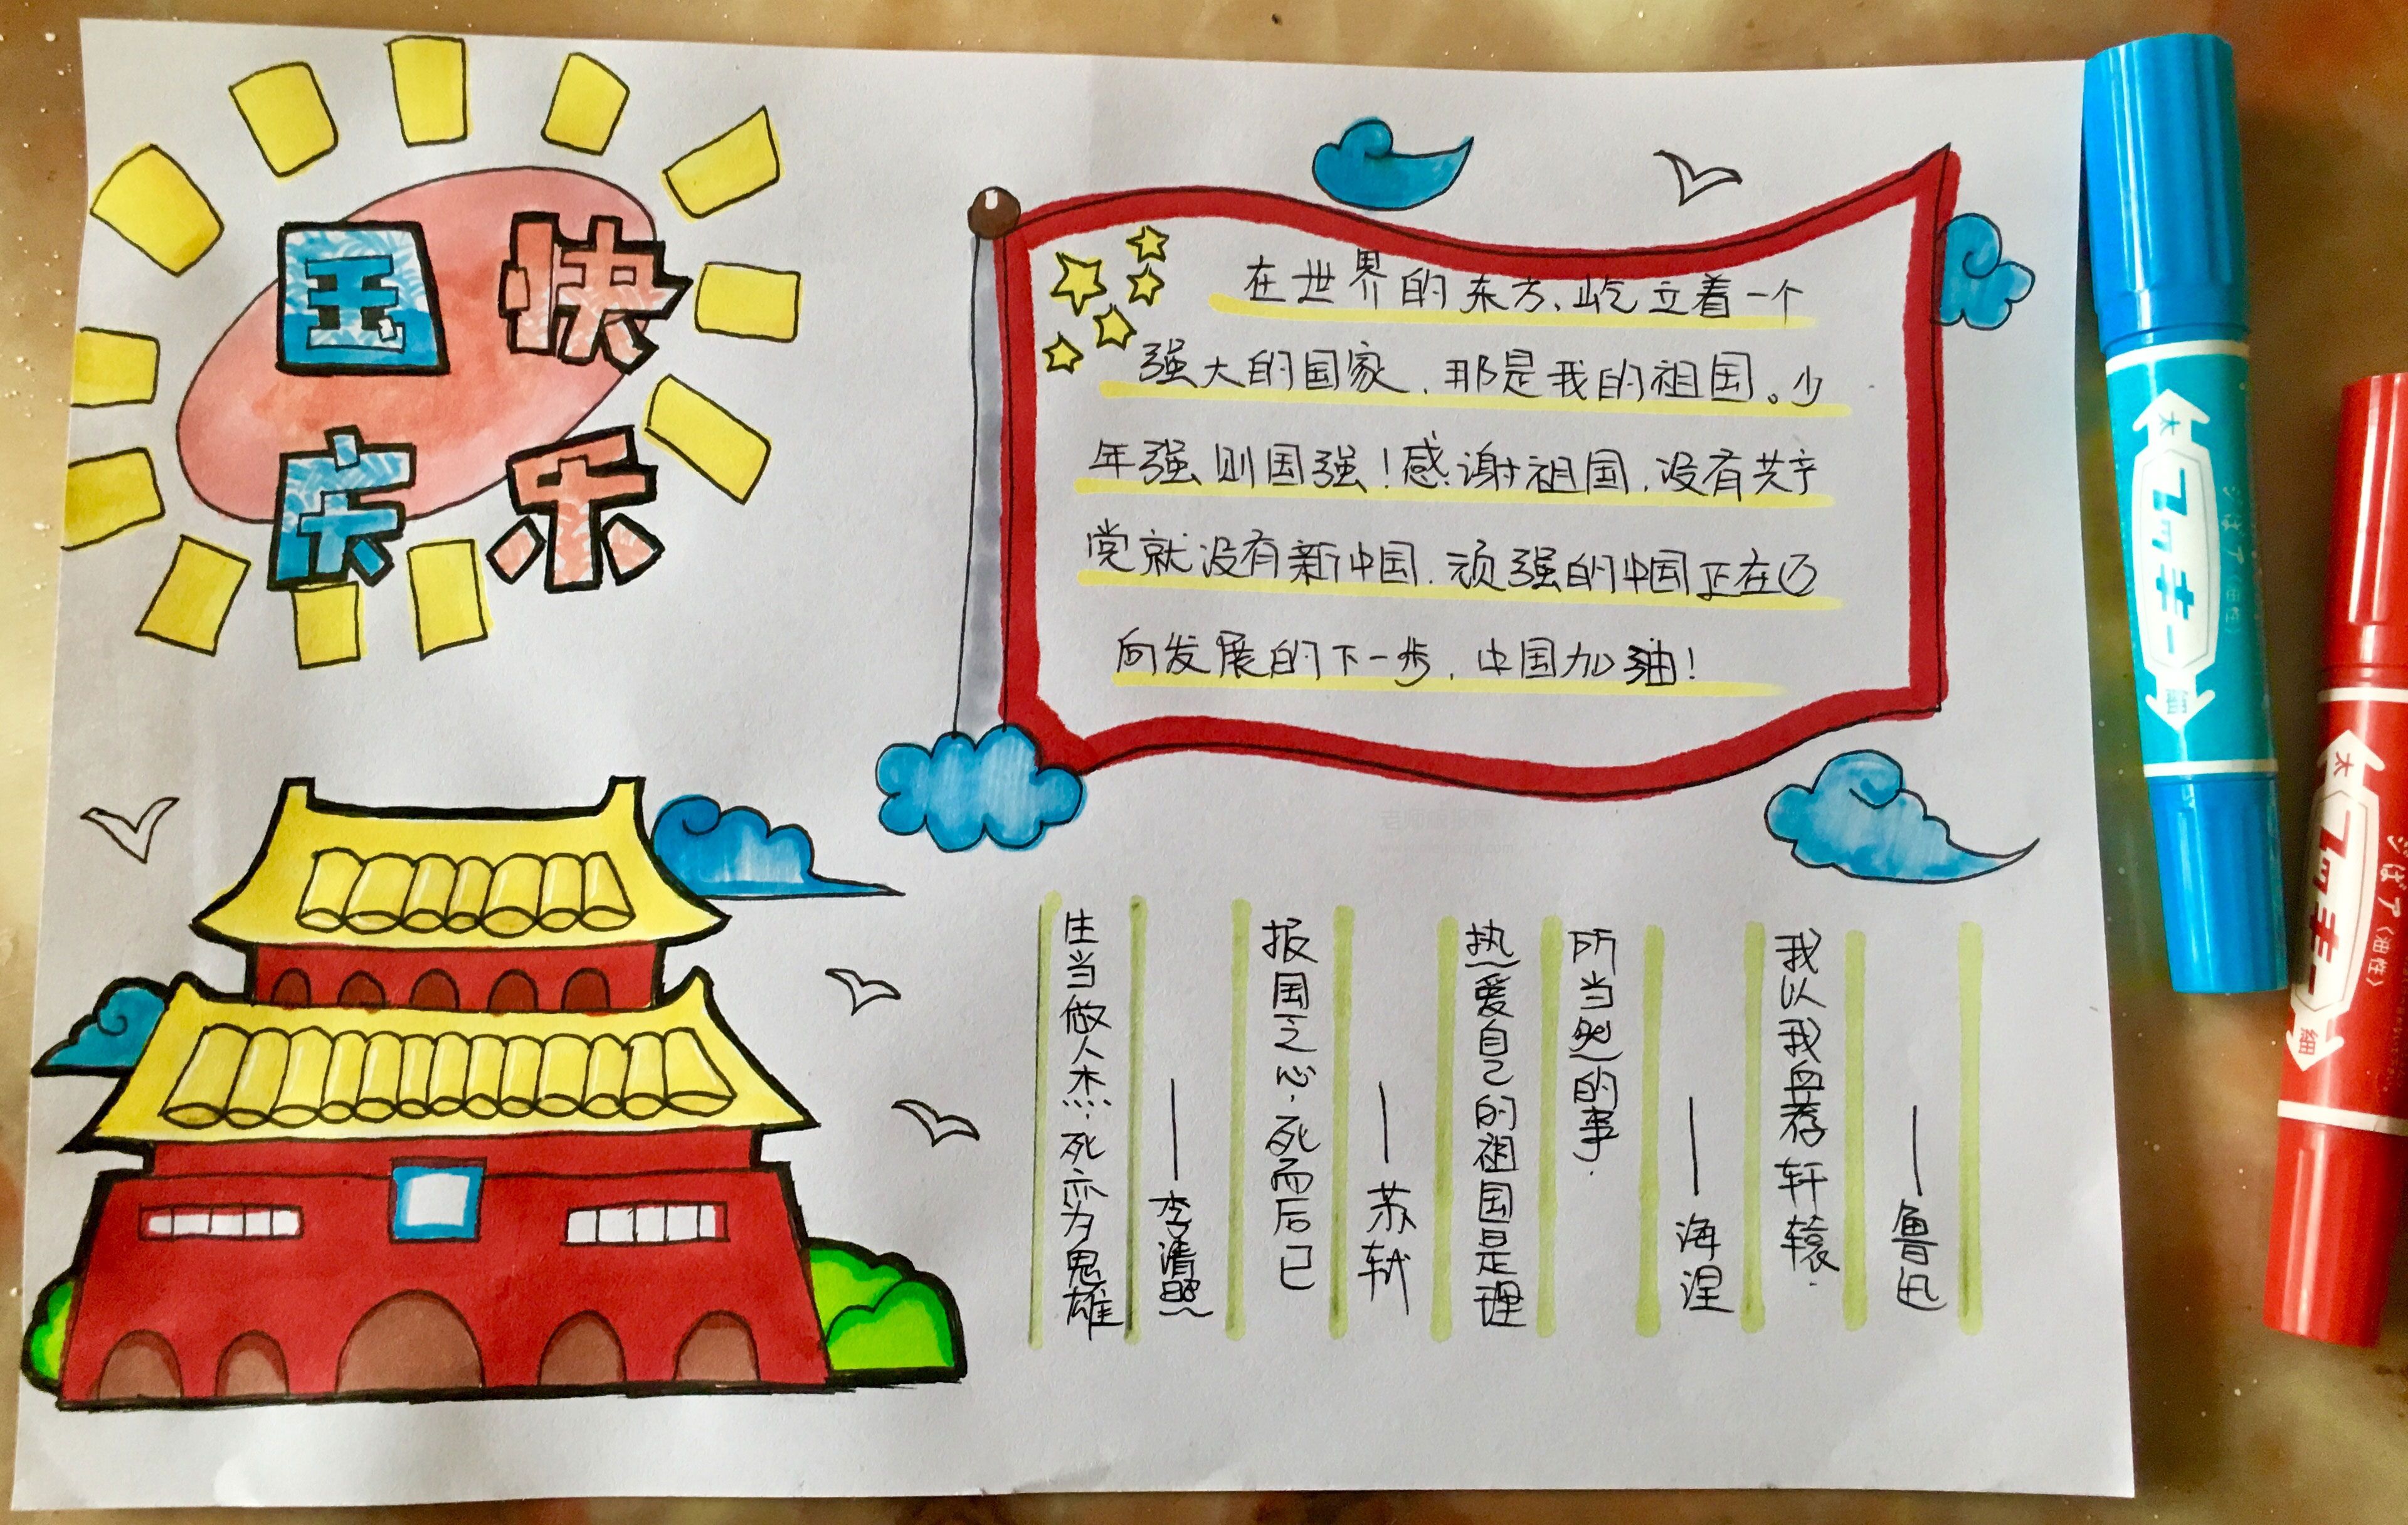 国庆
快乐
在世界的东方,屹立着一个
强大的国家,那是我的祖国。少
年强则国强!感谢祖国,没有共产
党就没有新中国,顽强的中国正在迈
向发展的下一步,中国加油!
生当做人杰,死亦为鬼雄
——李清照
报国之心,死而后已
——苏轼
热爱自己的祖国是理
所当然的事.
——海涅
我以我血荐轩辕.
——鲁迅
太
マッキー
細
(油性)
太
マッキー
細
(油性)